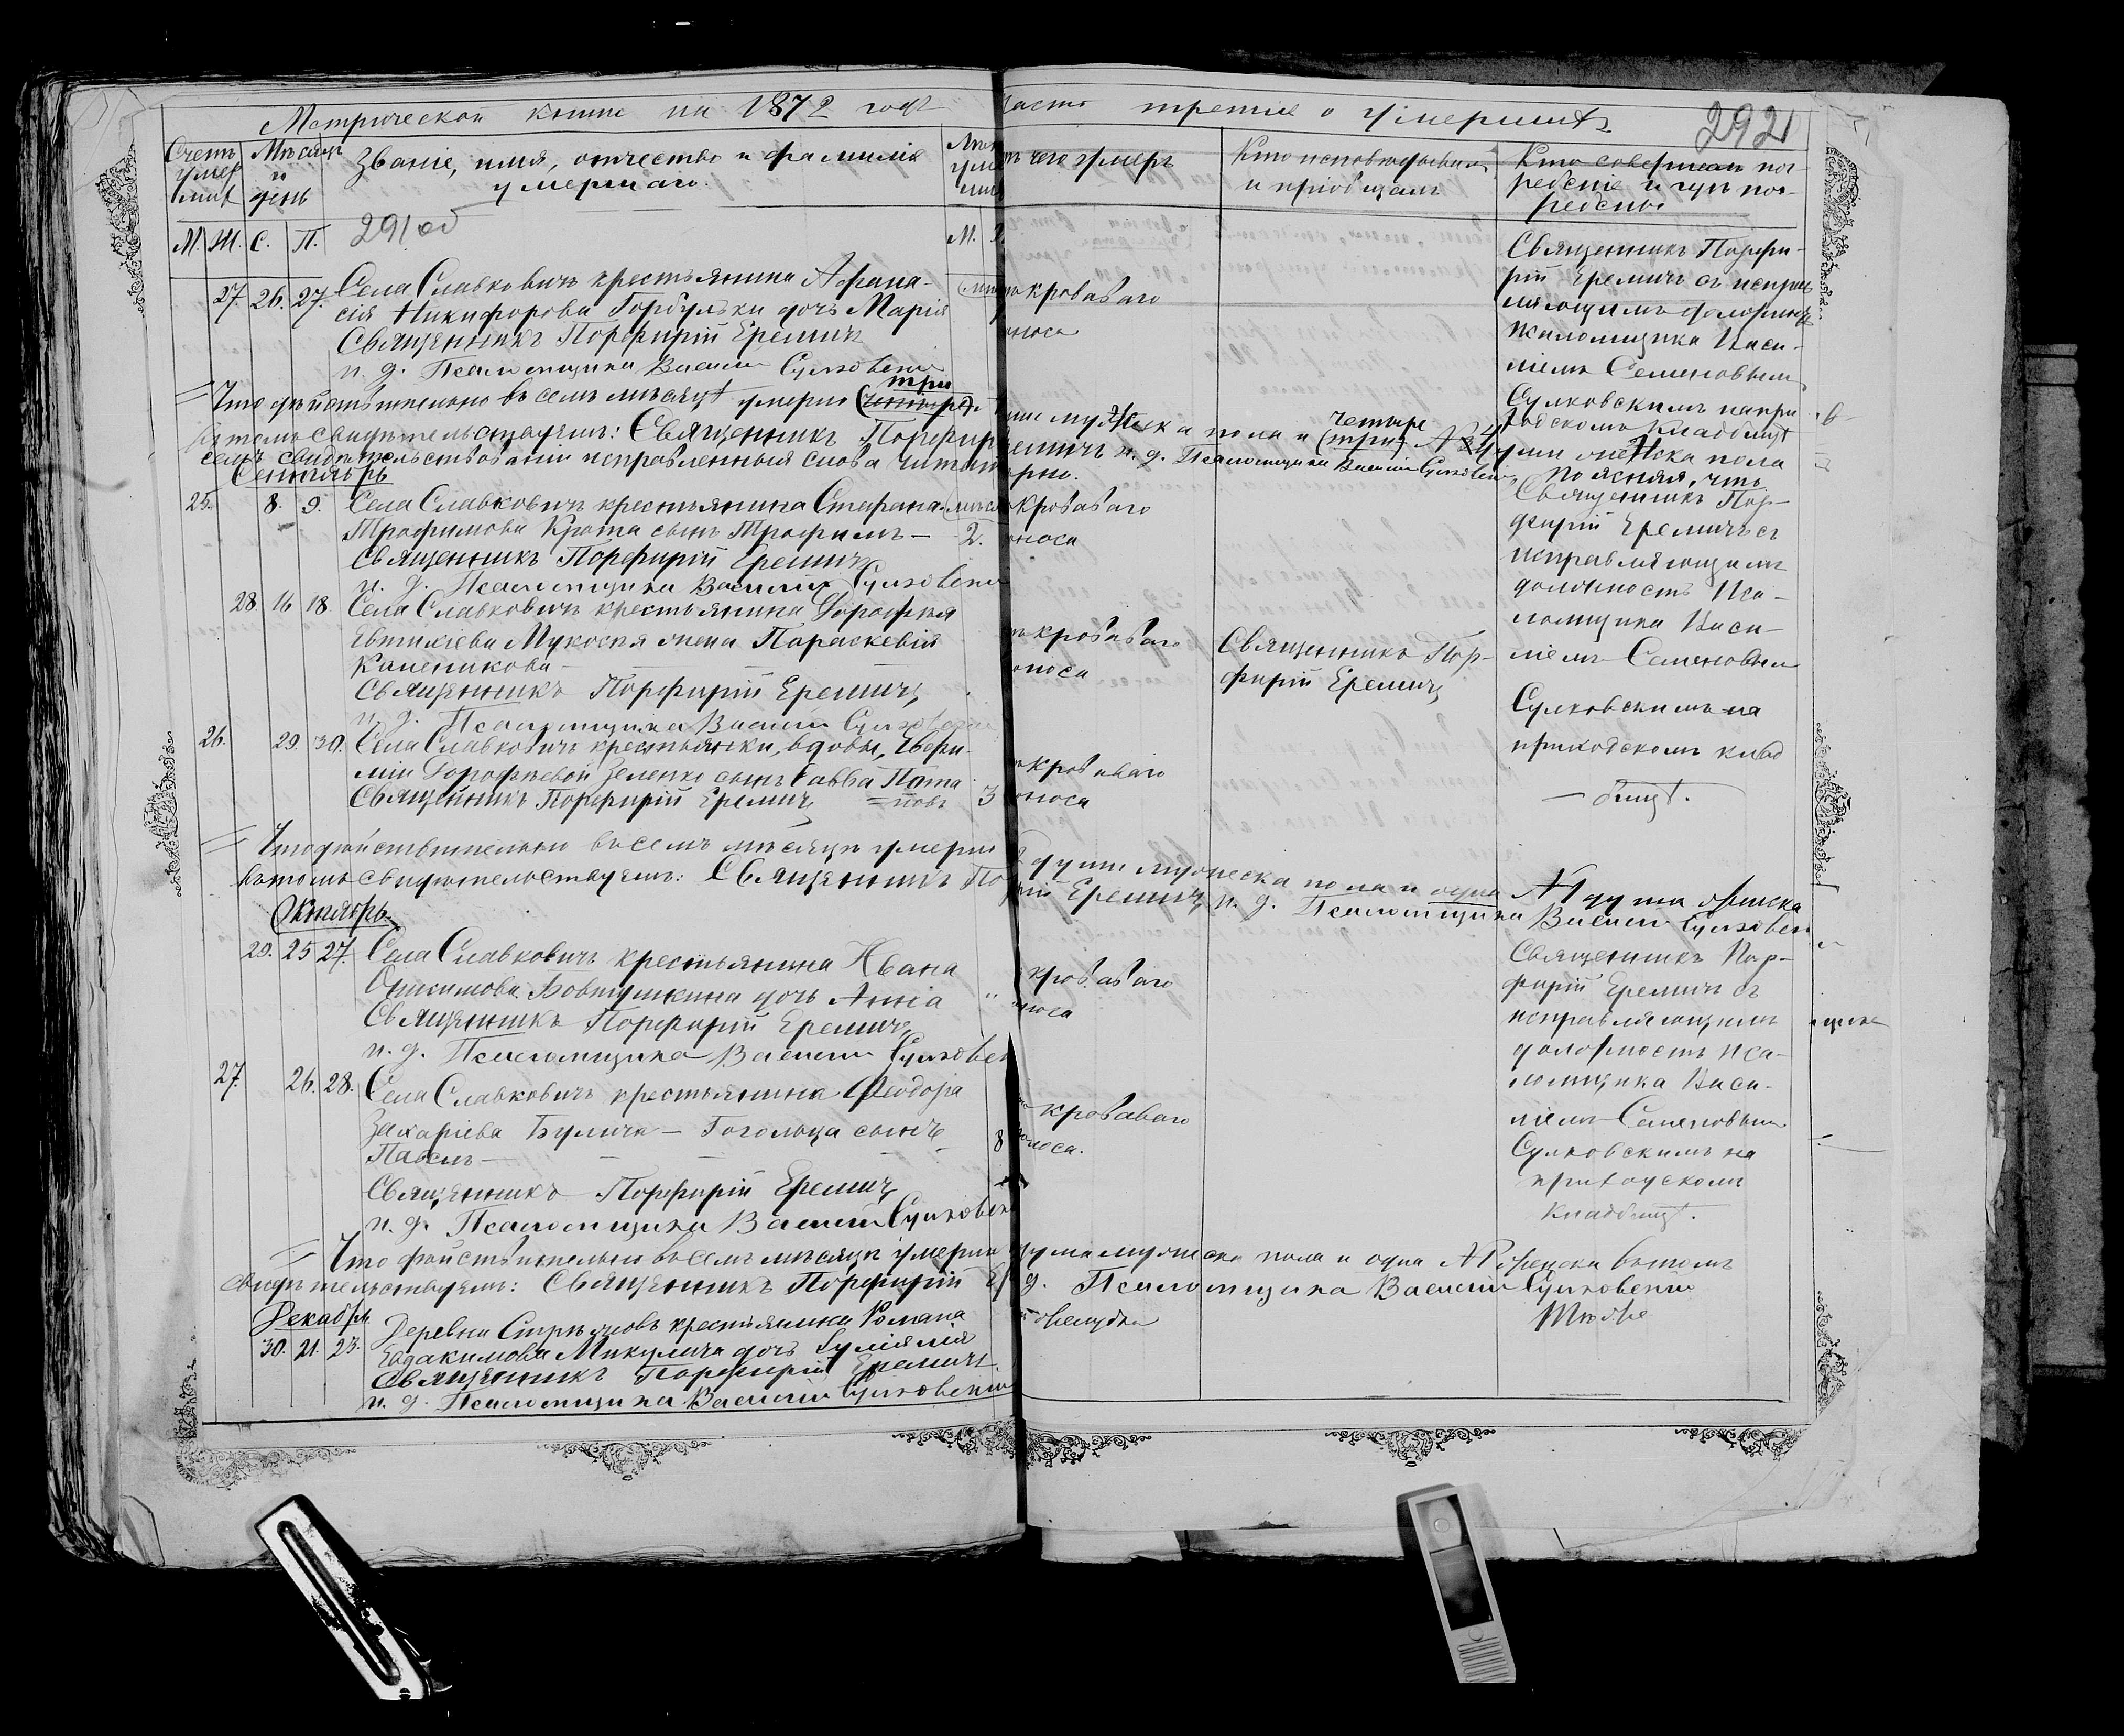 Метрической книги на 1872 годъ
Часть третія о умершихъ
292
Счетъ умер шихъ
Мѣсяцъ и день
Званіе, имя, отчество и фамилія умершаго.
чего умеръ
Кто исповѣдывалъ и пріобщалъ
Кто совершалъ пог-
ребеніе и гдѣ пог-
ребены
М. Ж. С. П.
291 об
М.
27. 26. 27. Села Славковичъ крестьянина Афана-
сія Никифорова Горбульки дочь Марія
Священникъ Порфирій Еремичъ
и. д. Псаломщика Василій Сулковскій
кроваваго
поноса
Священникъ Порфи-
рій Еремичъ съ исправ
ляющимъ должность
Псаломщика Васи-
ліемъ Семеновымъ
Сулковскимъ на при-
ходскомъ кладбищѣ
Что дѣйствительно въ семъ мѣсяцѣ умерло (четыре) три
души мужеска пола и (три) четыре № 4 души женска пола
въ томъ свидѣтельствуемъ: Священникъ Порфирій Еремичъ и. д. Псаломщика Василій Сулковскій, поясняя, что
семъ свидѣтельствованіи исправленныя слова читать
Сентябрь
25. 8. 9. Села Славковичъ крестьянина Стефана
Трофимова Крота сынъ Трофимъ — 2.
Священникъ Порфирій Еремичъ
и. д. Псаломщика Василій Сулковскій
кроваваго
поноса
Священникъ Пор-
фирій Еремичъ съ
исправляющимъ
должность Пса-
ломщика Васи-
ліемъ Семеновым
Сулковскимъ на
приходскомъ клад
— бищѣ.
28. 16 18. Села Славковичъ крестьянина Дорофея
Евтихіева Мукосѣя жена Параскевія
Каленикова —
Священникъ Порфирій Еремичъ
и. д. Псаломщика Василій Сулковскій
кроваваго
поноса
Священникъ Пор-
фирій Еремичъ
26. 29. 30. Села Славковичъ крестьянки, вдовы, Евфи-
міи Дорофѣевой Зеленко сынъ Савва Пота
Священникъ Порфирій Еремичъ = повъ 3
кроваваго
поноса
Что дѣйствительно въ семъ мѣсяцѣ умерли 2 души мужеска пола и одна № 1 душа женска
въ томъ свидѣтельствуемъ: Священникъ Порфирій Еремичъ, и. д. Псаломщика Василій Сулковскій
Октябрь
29. 25 27. Села Славковичъ крестьянина Ивана
Онисимова Бовтушкина дочь Анна "
Священникъ Порфирій Еремичъ
и. д. Псаломщика Василій Сулковскій
кроваваго
поноса
Священникъ Пор-
фирій Еремичъ съ
исправляющимъ
должность Пса-
ломщика Васи-
ліемъ Семеновым
Сулковскимъ на
приходскомъ
кладбищѣ.
27. 26. 28. Села Славковичъ крестьянина Феодора
Захаріева Булыча — Гогольца сынъ
Павелъ — 8
Священникъ Порфирій Еремичъ
и. д. Псаломщика Василій Сулковскій
кроваваго
поноса.
Что дѣйствительно въ семъ мѣсяцѣ умерли душа мужеска пола и одна № 1 женска въ томъ
свидѣтельствуемъ: Священникъ Порфирій и. д. Псаломщика Василій Сулковскій
Декабрь
30. 21. 23. Деревни крестьянина Романа
Евдакимова Микулича дочь
Священникъ Порфирій Еремичъ
и. д. Псаломщика Василій Сулковскій
желудка
Тѣ же